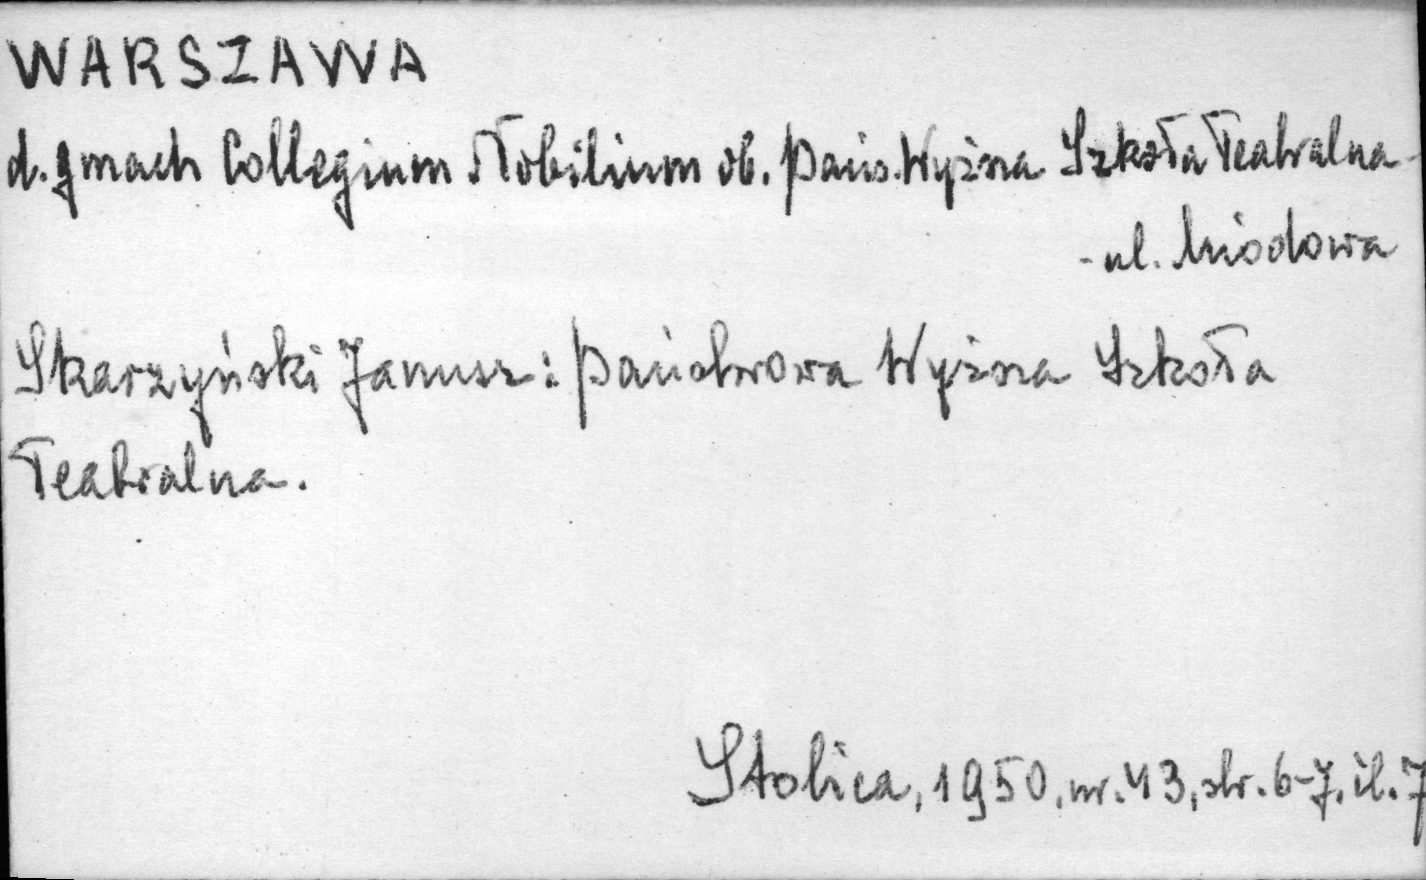 WARSZAWA
d. gmach Collegium Nobilium ob. Pańs. Wyższa Szkoła Teatralna -
- ul. Miodowa
Skarzyński Janusz: Państwowa Wyższa Szkoła
Teatralna.
Stolica, 1950, nr. 43, str. 6-7, il. 7